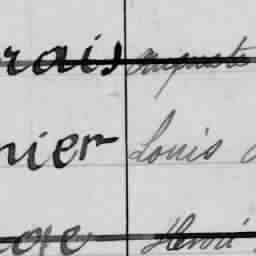 rais Auguste
nier Louis
Henri